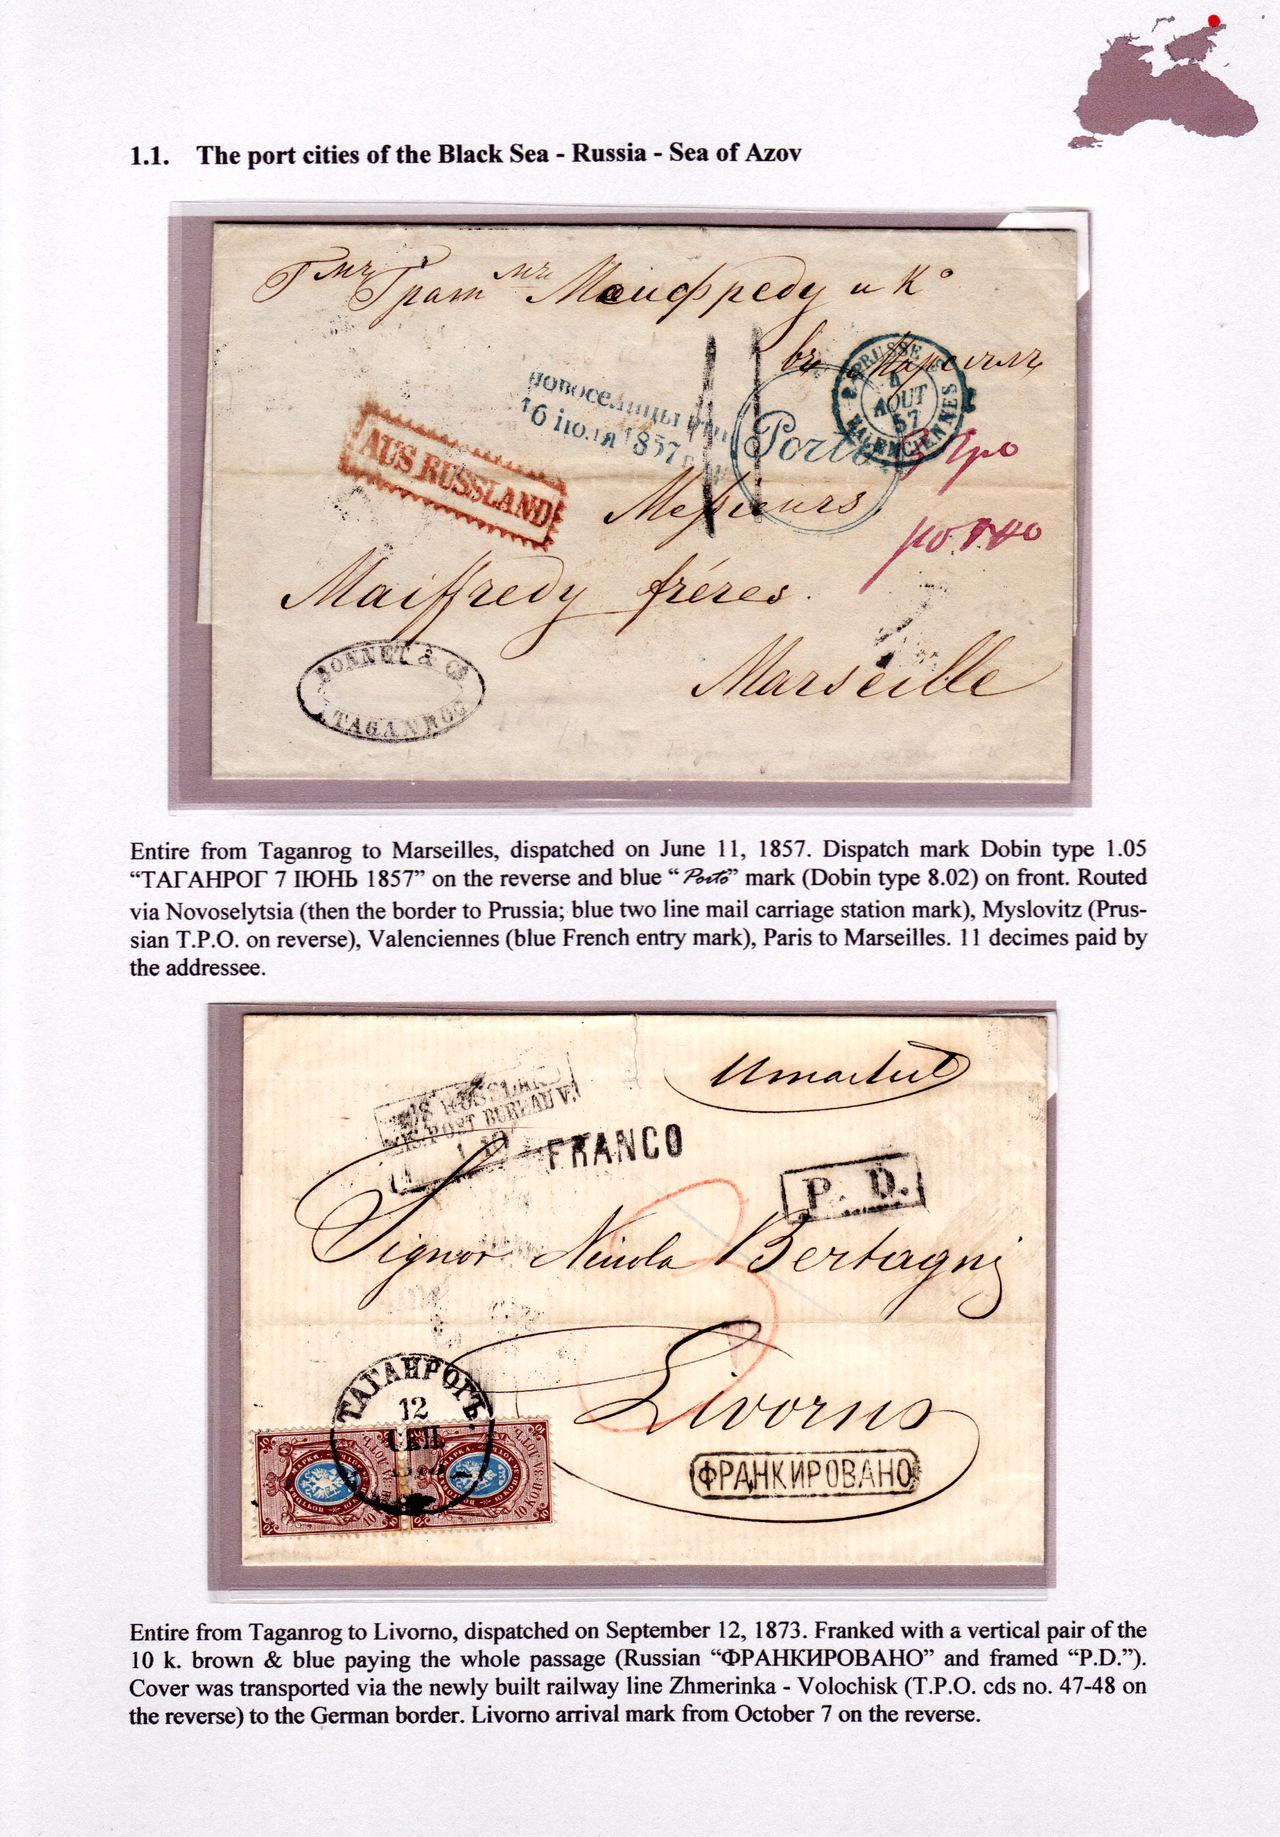 1.1. The port cities of the Black Sea - Russia - Sea of Azov
и К°
PRUSSE
AOUT
57
VALENCIENNES
новоселицы
16 июля 1857 г.
Porto
AUS RUSSLAND
Messieurs
порто
Maiffredy fréres.
BONNET & Co
TAGANROG
Marseille
Entire from Taganrog to Marseilles, dispatched on June 11, 1857. Dispatch mark Dobin type 1.05
“ТАГАНРОГ 7 ІЮНЬ 1857” on the reverse and blue “Porto” mark (Dobin type 8.02) on front. Routed
via Novoselytsia (then the border to Prussia; blue two line mail carriage station mark), Myslovitz (Prus-
sian T.P.O. on reverse), Valenciennes (blue French entry mark), Paris to Marseilles. 11 decimes paid by
the addressee.
AUS RUSSLAND
POST BUREAU V.
FRANCO
P. D.
Signor Nicola Bertagnj
3
Livorno
ТАГАНРОГЪ.
12
СЕН.
ФРАНКИРОВАНО
10 КОП.
Entire from Taganrog to Livorno, dispatched on September 12, 1873. Franked with a vertical pair of the
10 k. brown & blue paying the whole passage (Russian “ФРАНКИРОВАНО” and framed “P.D.”).
Cover was transported via the newly built railway line Zhmerinka - Volochisk (T.P.O. cds no. 47-48 on
the reverse) to the German border. Livorno arrival mark from October 7 on the reverse.